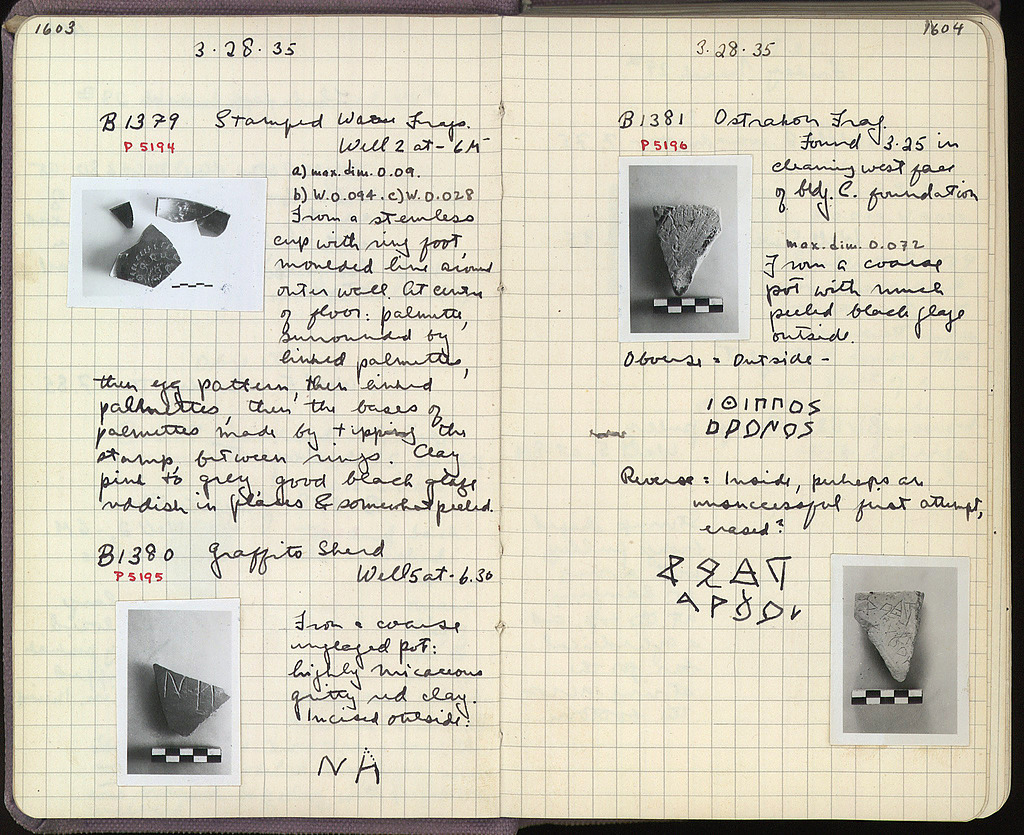 1603
3·28·35
B 1379 Stamped Ware Frags.
P 5194
Well 2 at -6M
a) max. dim. 0.09.
b) W. 0.094. c) W. 0.028
From a stemless
cup with ring foot,
moulded line around
outer wall. At centre
of floor: palmette,
surrounded by
linked palmettes,
then egg pattern, then linked
palmettes, then the bases of
palmettes made by tipping the
stamp, between rings. Clay
pink to grey good black glaze
reddish in places & somewhat peeled.
B1380 Graffito Sherd
P 5195
Well 5 at -6.30
From a coarse
unglazed pot:
highly micaceous
gritty red clay.
Incised outside:
NA
1604
3·28·35
B1381 Ostrakon Frag.
P 5196
Found 3.25 in
cleaning west face
of bldg. C. foundation
max. dim. 0.072
From a coarse
pot with much
peeled black glaze
outside.
Obverse = Outside -
ΙΘΙΠΠΟS
DΡΟΝΟS
Reverse = Inside, perhaps an
unsuccessful first attempt,
erased?